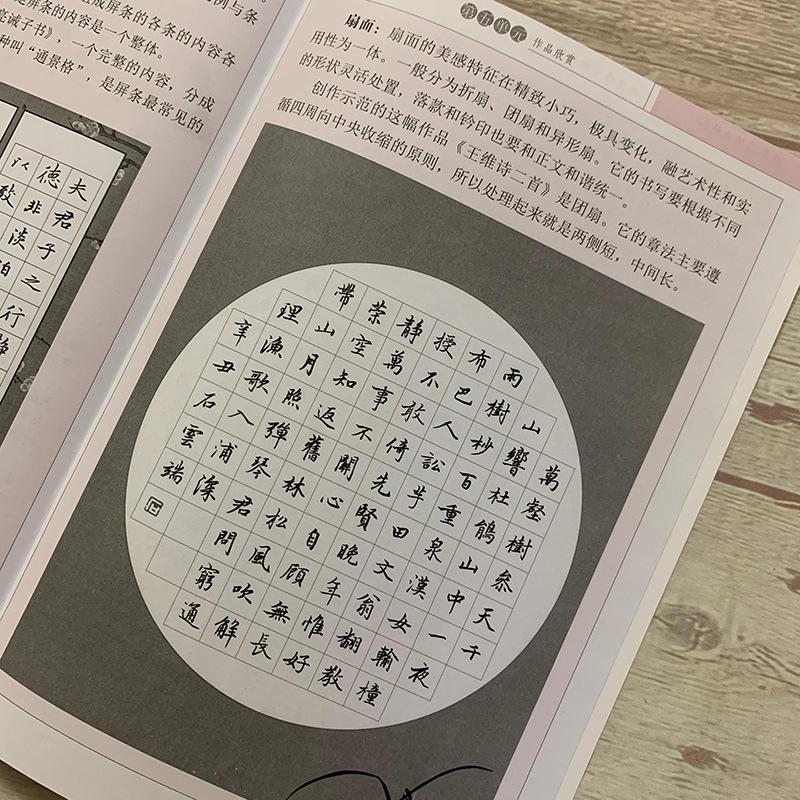 例与条
成屏条的各条的内容各
是屏条的内容是一个整体。
亮诫子书》，一个完整的内容，分成
种叫“通景格”，是屏条最常见的
夫君子之行
德非淡泊
以致
第五单元
作品欣赏
扇面：扇面的美感特征在精致小巧，极具变化，融艺术性和实
用性为一体。一般分为折扇、团扇和异形扇。它的书写要根据不同
的形状灵活处置，落款和钤印也要和正文和谐统一。
创作示范的这幅作品《王维诗一首》是团扇。它的章法主要遵
循四周向中央收缩的原则，所以处理起来就是两侧短，中间长。
萬壑樹參天千
山響杜鵑山中一夜
雨樹杪百重泉漢女輸橦
布巴人訟芋田文翁翻教
授不敢倚先賢晚年惟好
静萬事不關心自顧無長
策空知返舊林松風吹解
帶山月照彈琴君問窮通
理漁歌入浦深
辛丑石雲端